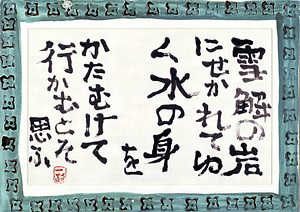 雪解の岩
にせかれてゆ
く水の身
を
かたむけて
行かむとぞ
思ふ